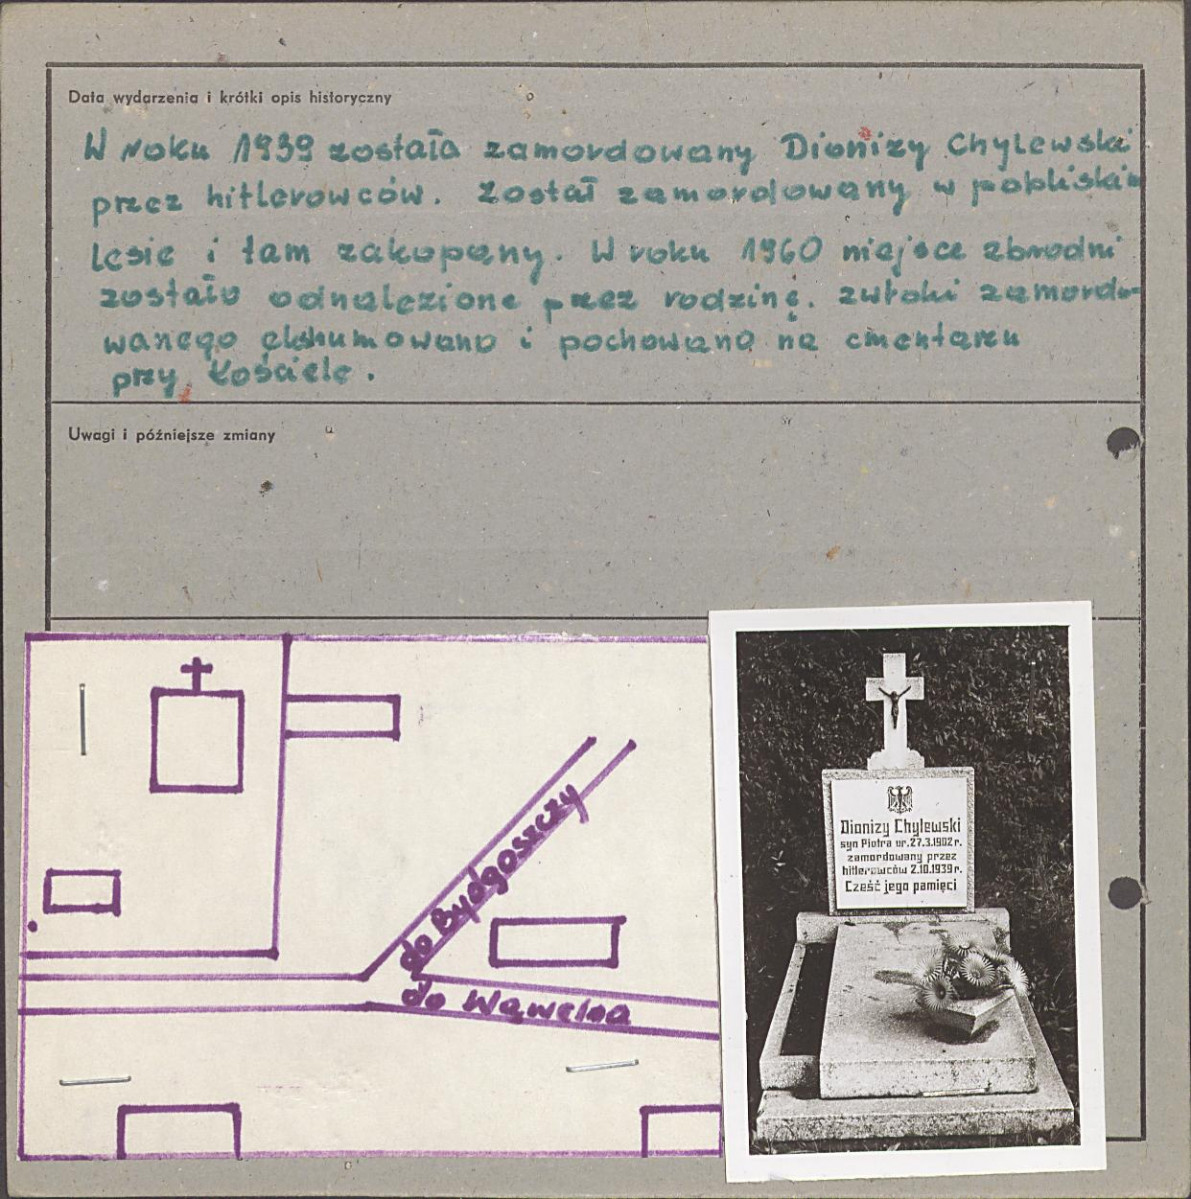 Data wydarzenia i krótki opis historyczny
W roku 1939 została zamordowany Dionizy Chylewski
przez hitlerowców. Został zamordowany w pobliskim
lesie i tam zakopany. W roku 1960 miejsce zbrodni
zostało odnalezione przez rodzinę. zwłoki zamordo-
wanego ekshumowano i pochowano na cmentarzu
przy kościele.
Uwagi i późniejsze zmiany
do Bydgoszczy
do Wąwelna
Dionizy Chylewski
syn Piotra ur. 27.3.1902 r.
zamordowany przez
hitlerowców 2.10.1939 r.
Cześć jego pamięci